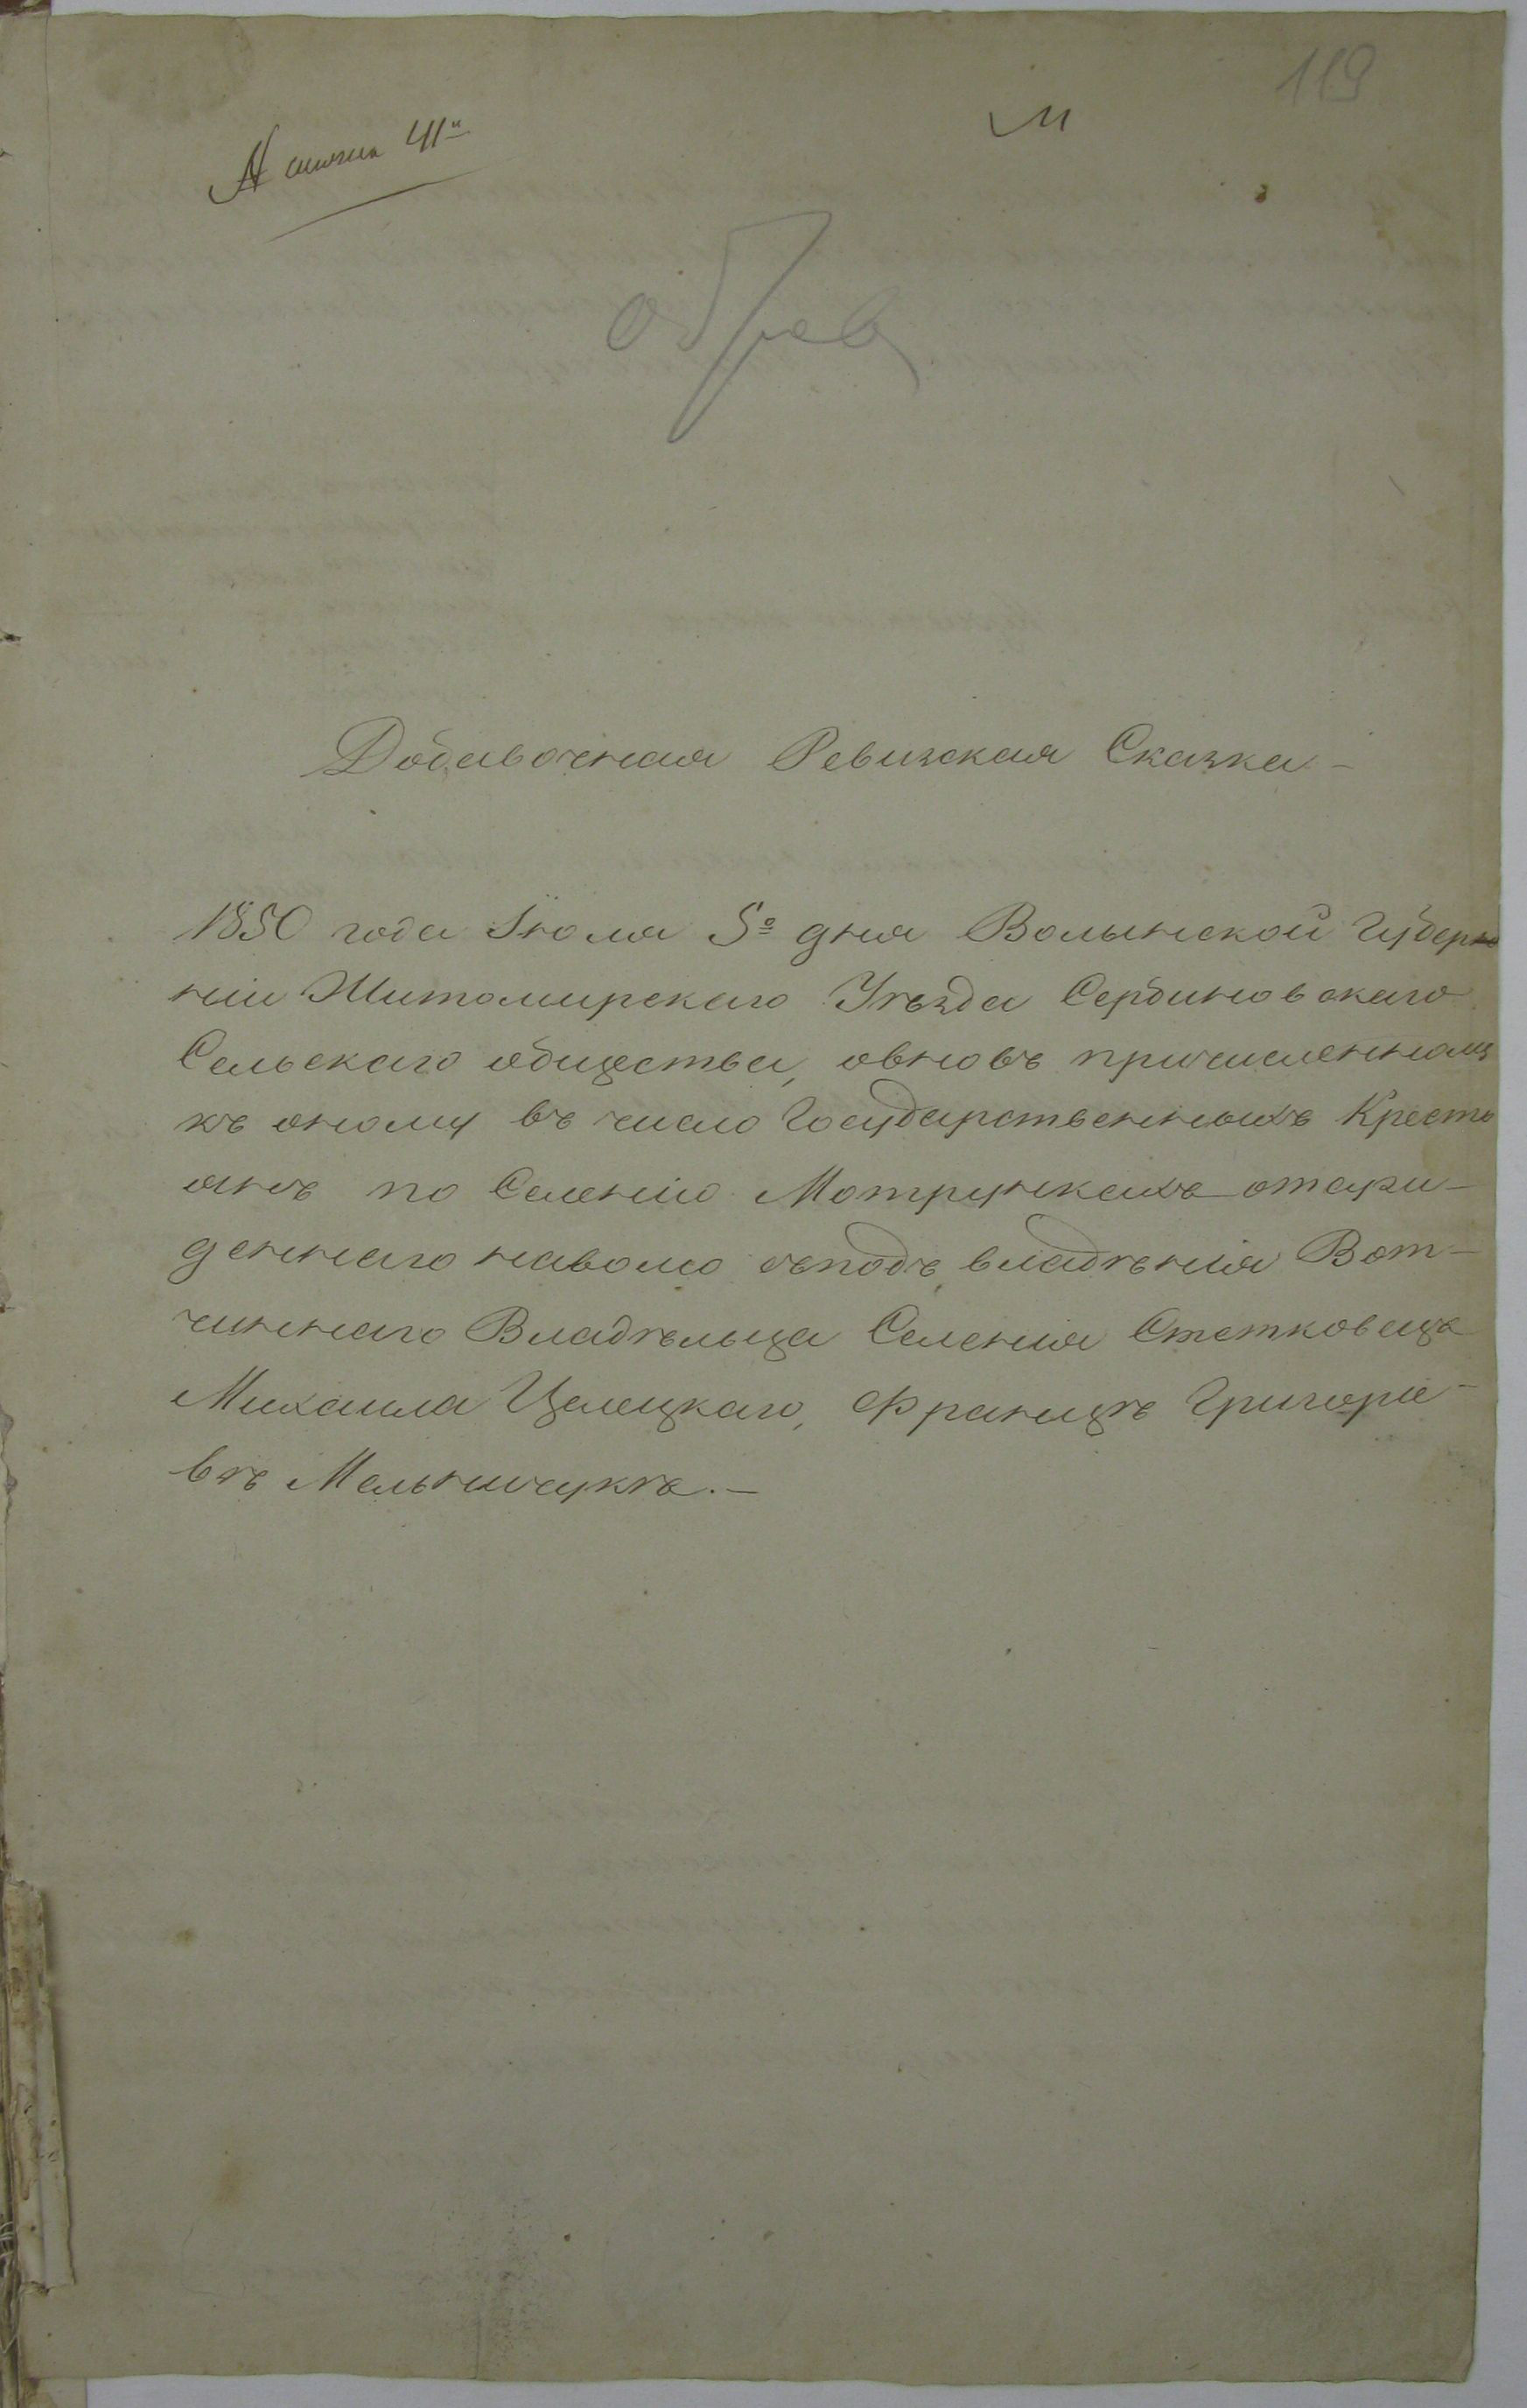 119
Добавочная Ревизская Сказка –
1850 года Іюля 5º дня Волынской Губер
ніи Житомирскаго Уѣзда Сербиновскаго
Сельскаго общества, овновь причисленномъ
къ оному въ число Государственныхъ Кресть
янъ по Селенію Мотрункахъ отсуж–
деннаго наволю съподъ владѣнія Вот–
чиннаго Владѣльца Селенія Стетковецъ
Михаила Целецкаго, Францѣ Григоріе–
вѣ Мельничукѣ. –